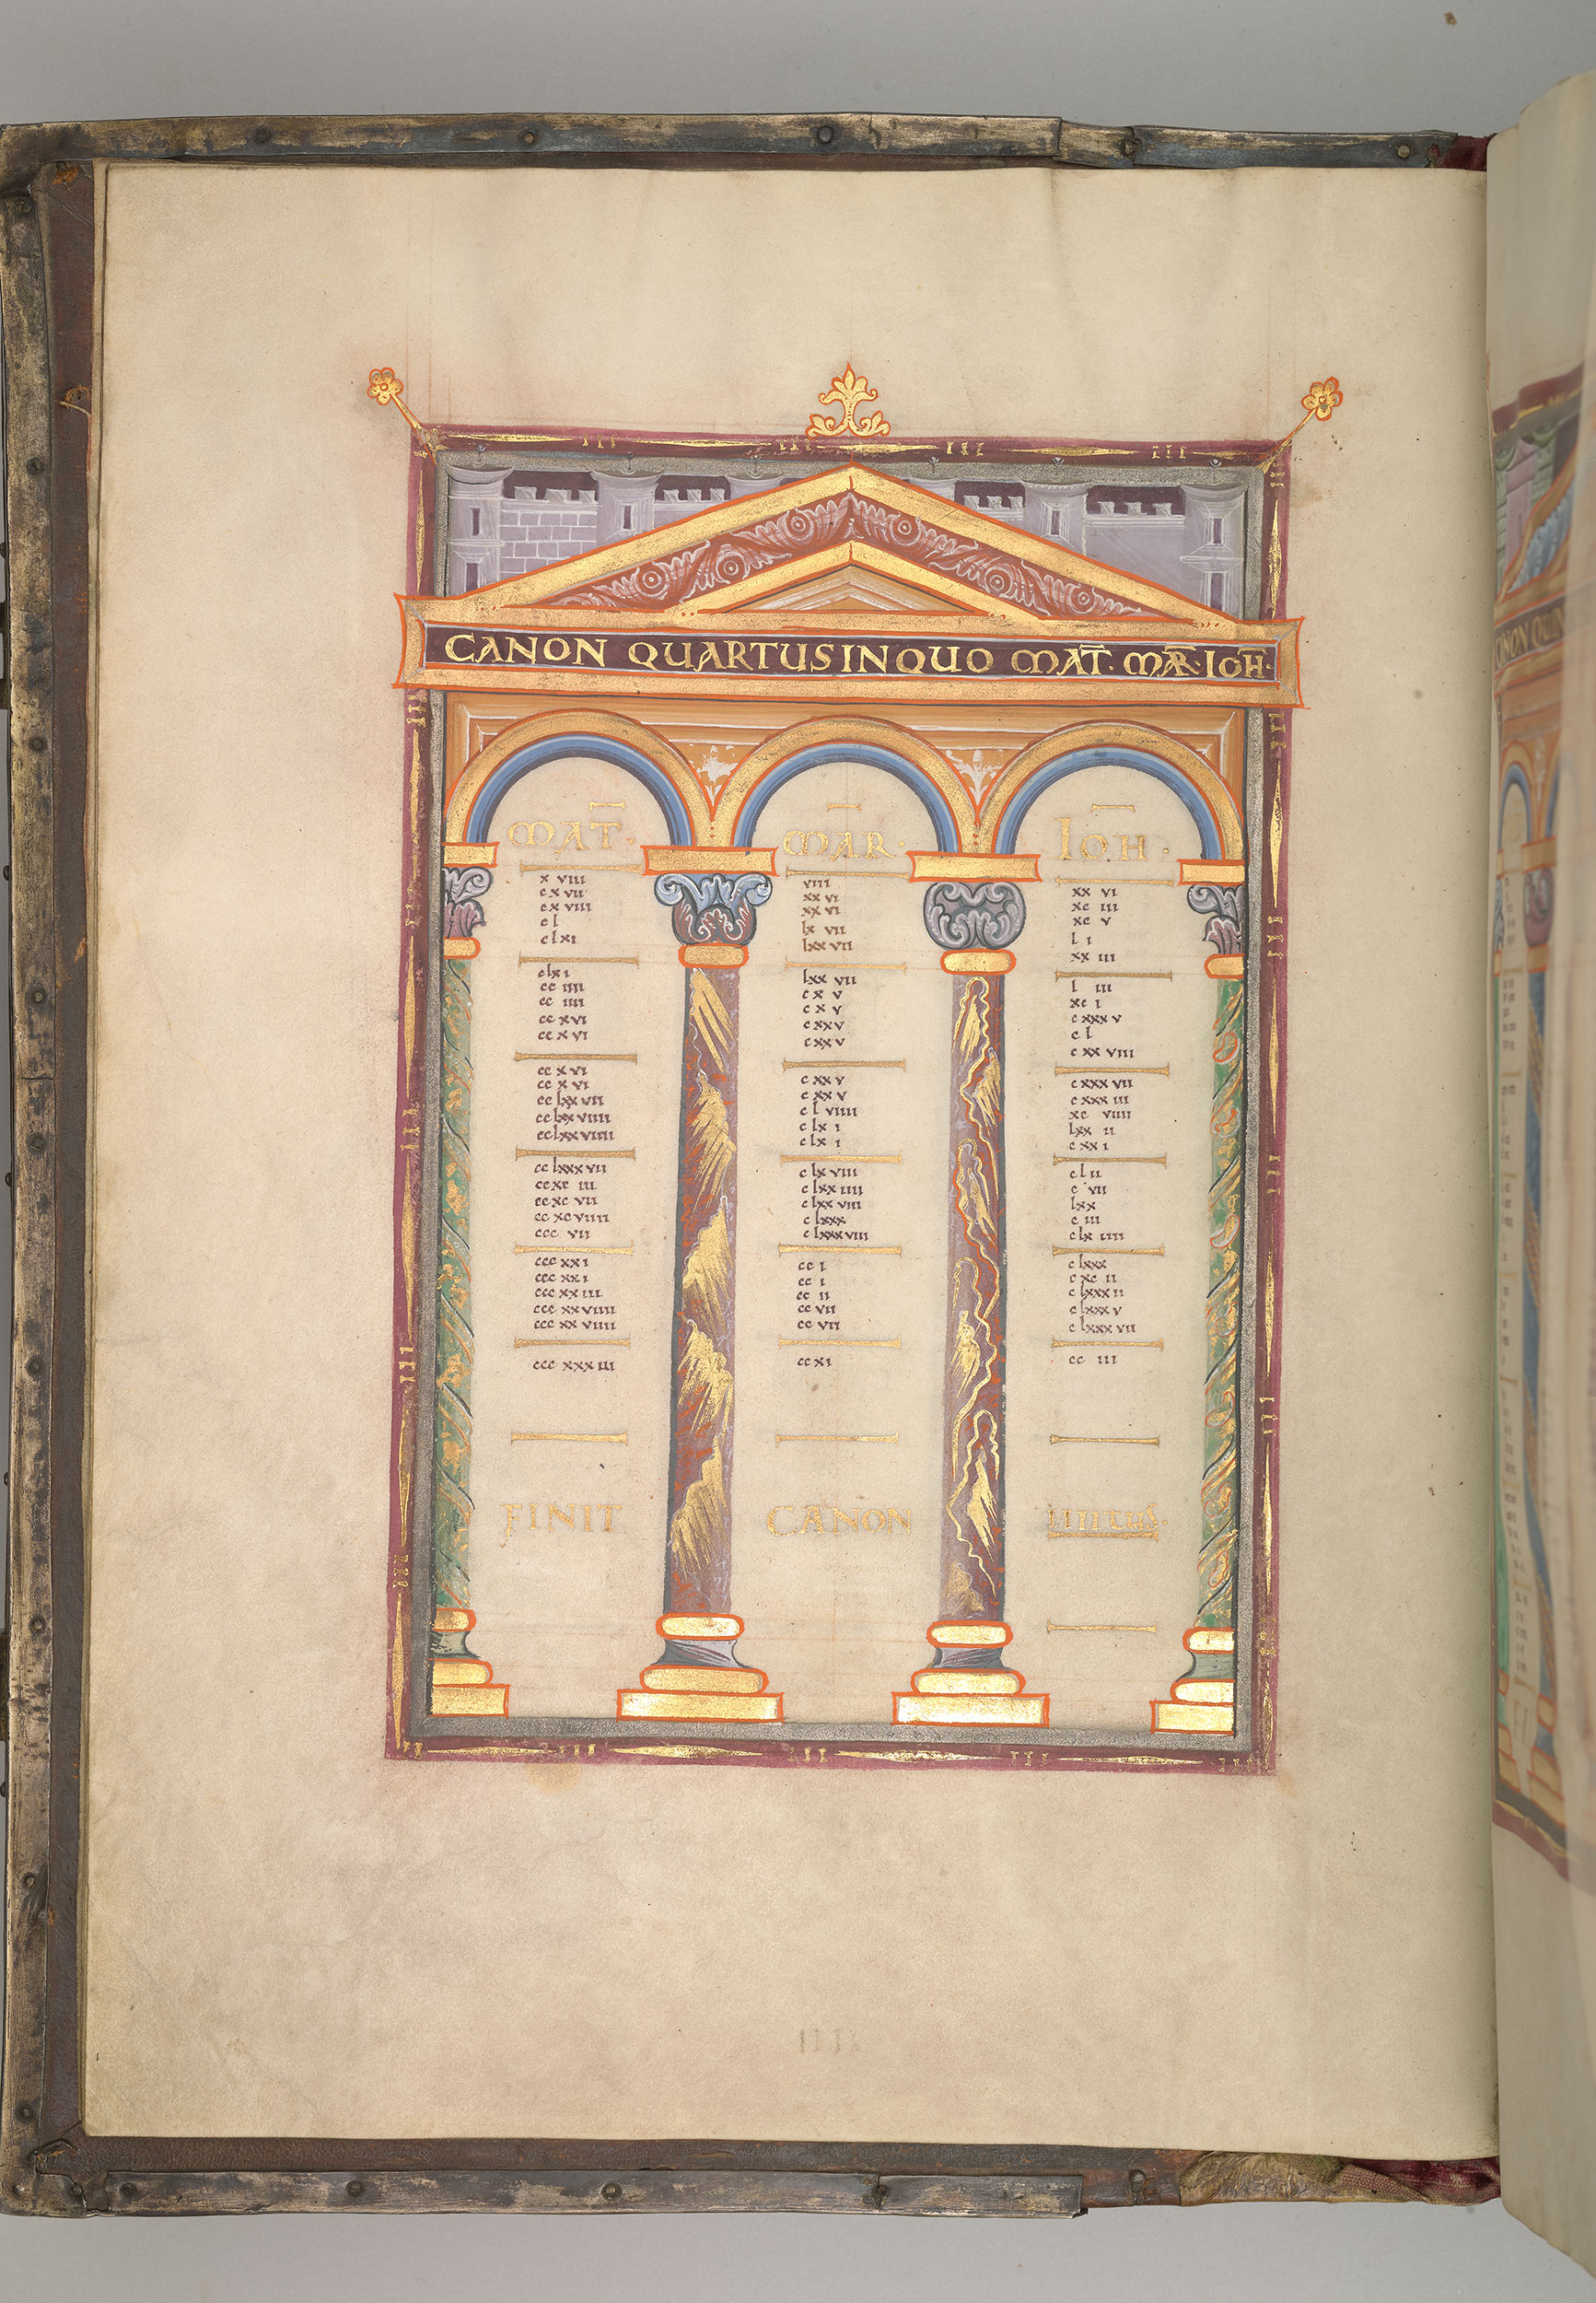 CANON QUARTUS IN QUO MAT. MAR. IOH.
MAT. MAR. IOH.
x viii viiii xx vi
cx vii xx vi xc iii
cx viii xx vi xc v
cl lx vii l i
clxi lxx vii xx iii
clxi lxx vii l iii
cc iiii cx v xc i
cc iiii cx v cxxx v
cc xvi cxxv cl
cc xvi cxxv cxx viii
cc xvi cxxv cxxx vii
cc xvi cxxv cxxx iii
cc lxx vii cl viiii xc viiii
cc lxx viiii clx i lxx ii
cc lxx viiii clx i cxx i
cc lxxx vii clx viii cl ii
cc xc iii clxx iiii c vii
cc xc vii clxx viii lxx
cc xc viiii clxxx c iii
ccc vii clxxx viii clx iiii
ccc xx i cc i clxxx
ccc xx i cc i c xc ii
ccc xx iii cc ii clxxx ii
ccc xx viiii cc vii clxxx v
ccc xx viiii cc vii clxxx vii
ccc xxx iii cc xi cc iii
FINIT CANON IIIItus.
IIII